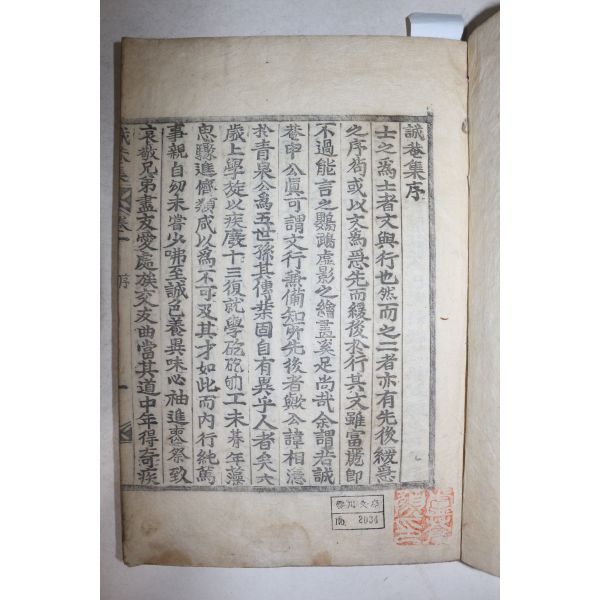 誠菴集序
士之爲士者文與行也然而之二者亦有先後緩急
之序苟或以文爲急先而緩後於行其文雖富麗卽
不過能言之鸚鵡虛影之繪畵奚足尚哉余謂若誠
菴申公眞可謂文行兼備知所先後者歟公諱相
於靑泉公爲五世孫其傳業固自有異乎人者矣六
歲上學旋以疾廢十三復就學矻矻劬工未朞年藻
思驟進儕類咸以爲不可及其才如此而內行純篤
事親自幼未嘗少咈至誠色養異味必袖進喪祭致
哀敬兄弟盡友愛處族交友曲當其道中年得奇疾
卷一 序 一
2034